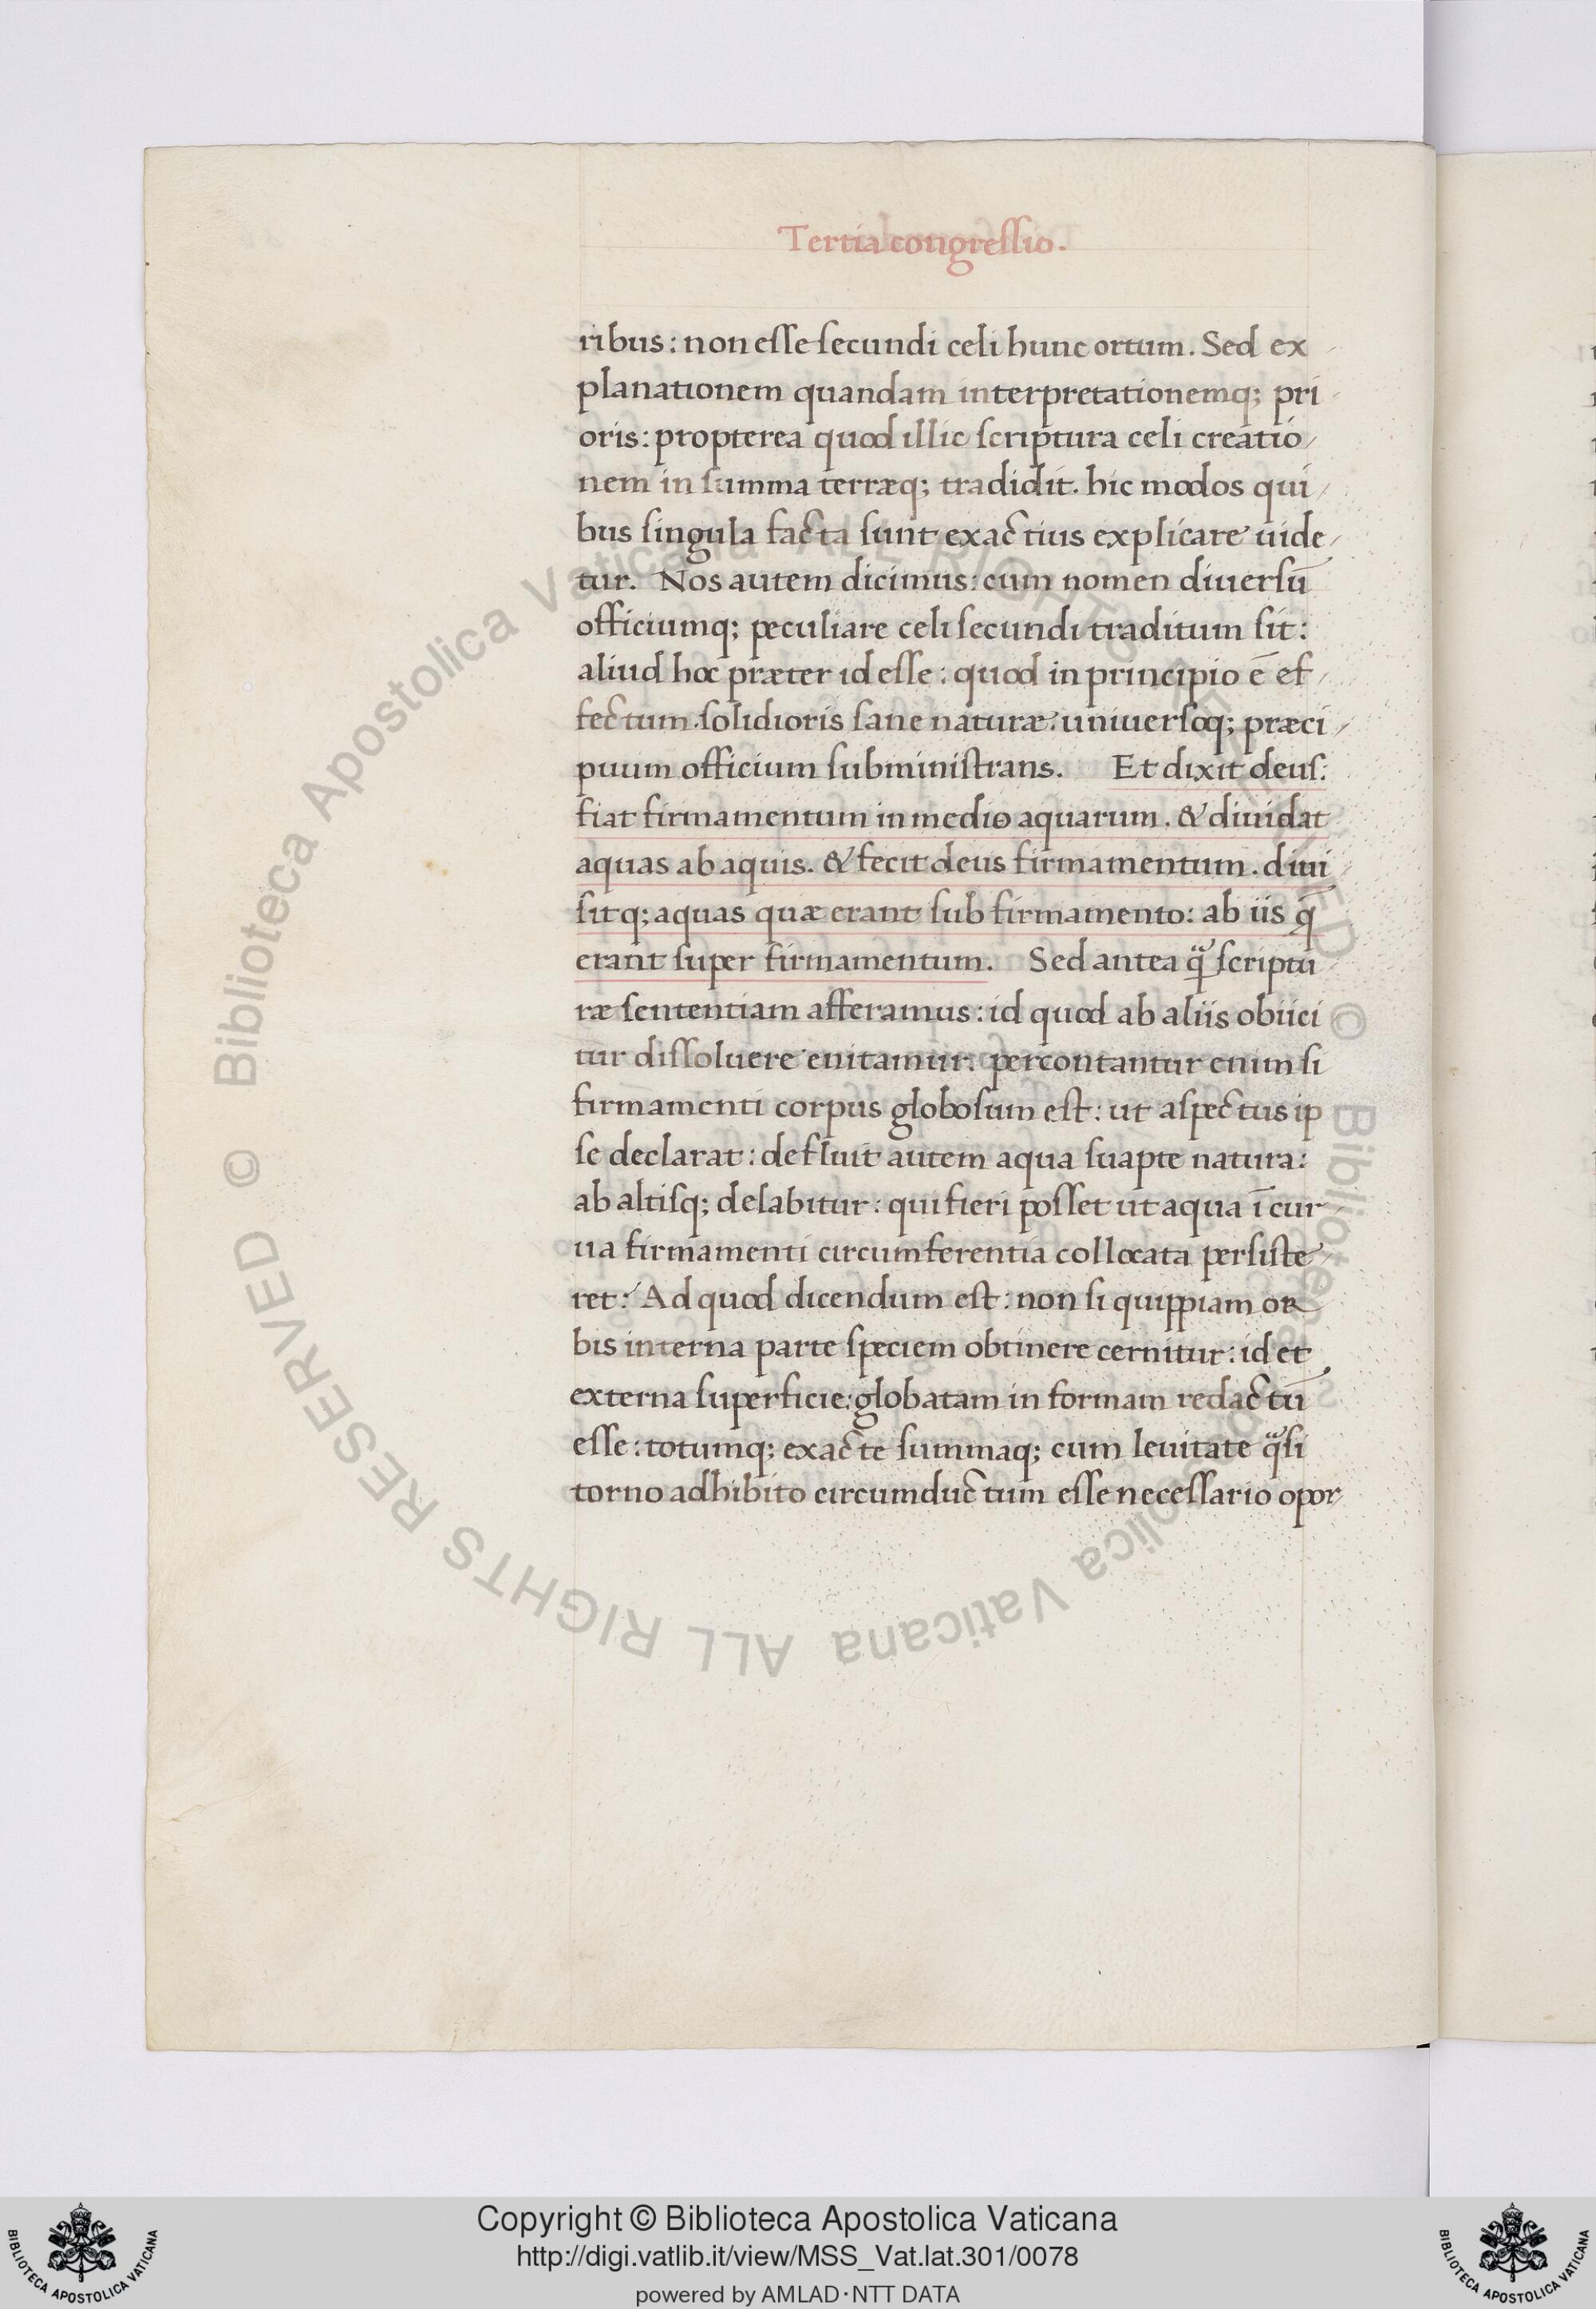 Tertia congressio.
ribus: non esse secundi celi hunc ortum. Sed ex
planationem quandam interpretationemq; pri
oris: propterea quod illic scriptura celi creatio
nem in summa terræq; tradidit. hic modos qui
bus singula facta sunt exactius explicare uide
tur. Nos autem dicimus: cum nomen diuersū
officiumq; peculiare celi secundi traditum sit:
aliud hoc præter id esse: quod in principio ē ef
fectum. solidioris sane naturæ. uniuersoq; præci
puum officium subministrans. Et dixit deus:
fiat firmamentum in medio aquarum. & diuidat
aquas ab aquis. & fecit deus firmamentum. diui
sitq; aquas quæ erant sub firmamento: ab iis q̄
erant super firmamentum. Sed antea qᷓ scriptu
ræ sententiam afferamus: id quod ab aliis obiici
tur dissoluere enitamur. percontantur enim si
firmamenti corpus globosum est: ut aspectus ip
se declarat: defluit autem aqua suapte natura:
ab altisq; delabitur: qui fieri posset ut aqua ī cur
ua firmamenti circumferentia collocata persiste
ret? Ad quod dicendum est: non si quippiam or
bis interna parte speciem obtinere cernitur: id et
externa superficie: globatam in formam redactū
esse: totumq; exacte summaq; cum leuitate qᷓsi
torno adhibito circumductum esse necessario opor
© Biblioteca Apostolica Vaticana ALL RIGHTS RESERVED
© Biblioteca Apostolica Vaticana ALL RIGHTS RESERVED
Copyright © Biblioteca Apostolica Vaticana
http://digi.vatlib.it/view/MSS_Vat.lat.301/0078
powered by AMLAD·NTT DATA
BIBLIOTECA APOSTOLICA VATICANA
BIBLIOTECA APOSTOLICA VATICANA